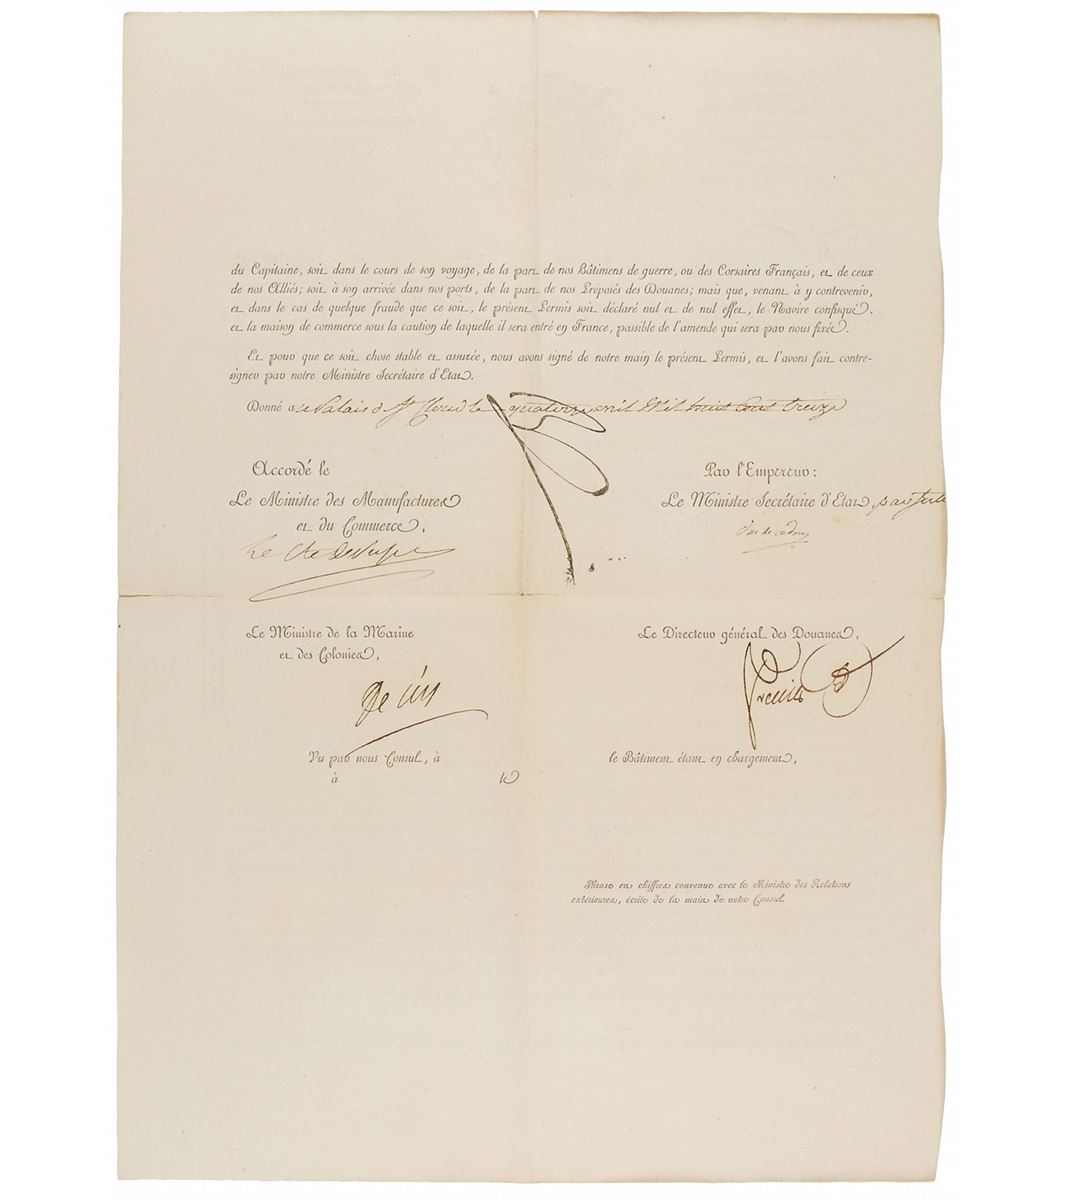 du Capitaine, soit dans le cours de son voyage, de la part de nos Bâtimens de guerre, ou des Corsaires Français, et de ceux
de nos Alliés; soit à son arrivée dans nos ports, de la part de nos Préposés des Douanes; mais que, venant à y contrevenir,
et dans le cas de quelque fraude que ce soit, le présent Permis soit déclaré nul et de nul effet, le Navire confisqué,
et la maison de commerce sous la caution de laquelle il sera entré en France, passible de l'amende qui sera par nous fixée.
Et pour que ce soit chose stable et assurée, nous avons signé de notre main le présent Permis, et l'avons fait contre-
signer par notre Ministre Secrétaire d'Etat.
Donné au Palais de St Cloud le quatorze avril Mil huit Cent treize
Accordé le
Par l'Empereur:
Le Ministre des Manufactures
et du Commerce,
Le Ministre Secrétaire d'Etat,
Le Cte de
Le Ministre de la Marine
et des Colonies,
Le Directeur général des Douanes,
Vu par nous Consul, à
le Bâtiment étant en chargement,
à le
Phrase en chiffres convenue avec le Ministre des Relations
extérieures, écrite de la main de notre Consul